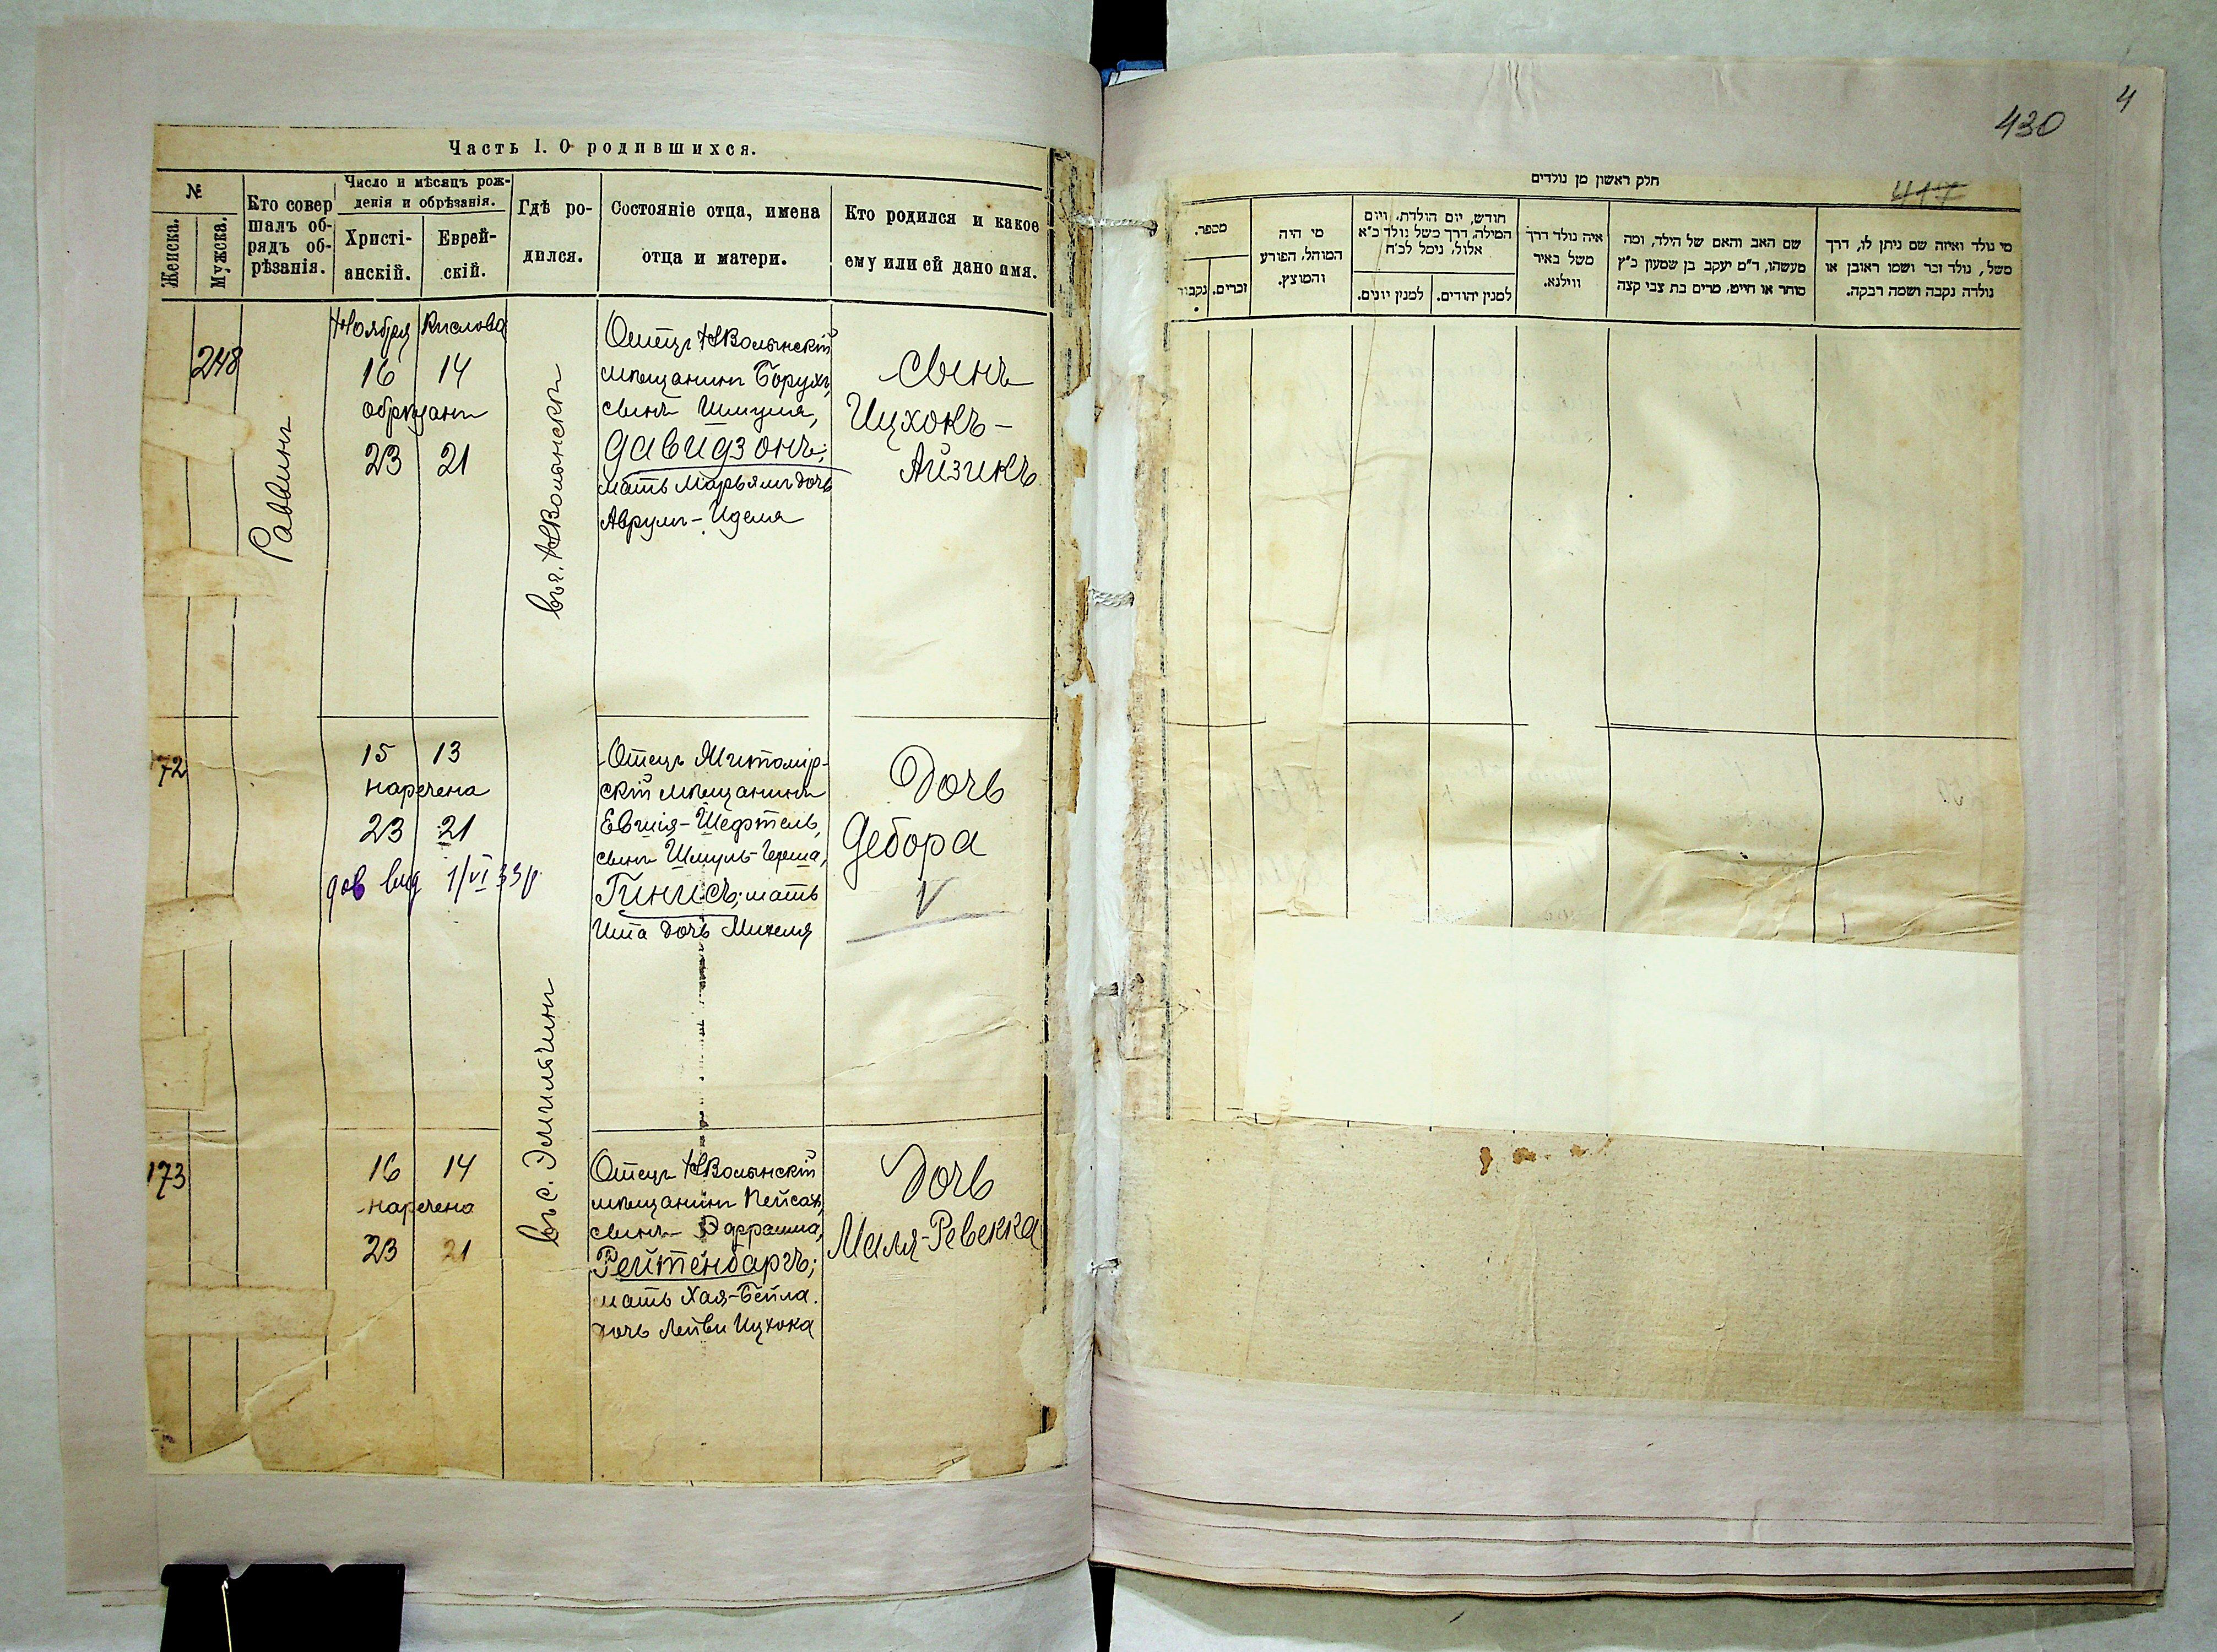 Часть I. О родившихся.
№
Женска.
Мужска.
Кто совер
шалъ об-
рядъ об-
рѣзанія.
Число и мѣсяцъ рож-
денія и обрѣзанія.
Христі-
анскій.
Еврей-
скій.
Гдѣ ро-
дился.
Состояніе отца, имена
отца и матери.
Кто родился и какое
ему или ей дано имя.
248
Раввинъ
Ноября Кислова
16 14
обрѣзанъ
23 21
въ г. НВолынскѣ
Отецъ НВолынскій
мѣщанинъ Борухъ,
сынъ Шмуля,
Давидзонъ;
мать Марьямъ дочь
Аврумъ-Иделя
Сынъ
Ицхокъ-
Айзикъ
72
15 13
наречена
23 21
дов вид 1/VI 33р
Отецъ Житомір-
скій мѣщанинъ
Евшія-Шефтель,
сынъ Шмуль-Герша,
Гинисъ; мать
Ита дочь Михеля
Дочь
Дебора
V
173
16 14
наречена
23 21
въ с. Эмильчинѣ
Отецъ НВолынскій
мѣщанинъ Пейсах,
сынъ Эфраима,
Рейтенбаргъ;
мать Хая-Бейла
дочь Лейви Ицхока
Дочь
Маля-Ревекка
4
430
417
חלק ראשון מן נולדים
מספר.
נקבות
זכרים.
מי היה
המוהל, הפורע
והמוצץ.
חודש, יום הולדת, ויום
המילה, דרך משל נולד כ"א
אלול, נימל לכ"ח
למנין יונים.
למנין יהודים.
איה נולד דרך
משל באיר
ווילנא.
שם האב והאם של הילד, ומה
מעשהו, ד"מ יעקב בן שמעון כ"ץ
סוחר או חייט, מרים בת צבי קצה
מי נולד ואיזה שם ניתן לו, דרך
משל, נולד זכר ושמו ראובן או
נולדה נקבה ושמה רבקה.